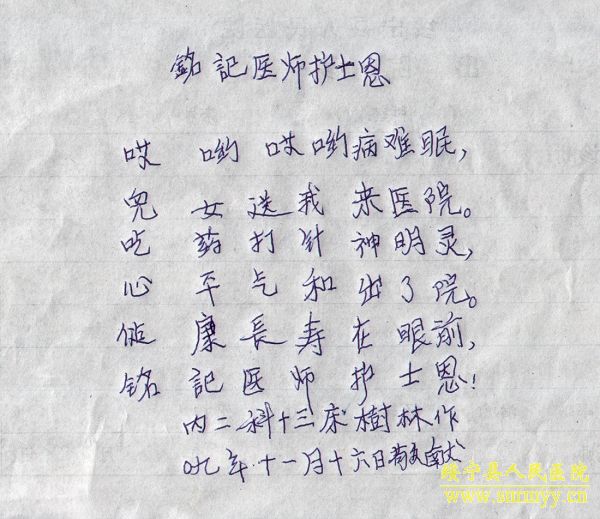 銘記医师护士恩
哎哟哎哟病难眠,
兒女送我来医院。
吃药打针神明灵,
心平气和出了院。
健康長寿在眼前,
銘記医师护士恩!
内二科十三床樹林作
0九年十一月十六日敬献
绥宁县人民医院
www.snrmyy.cn